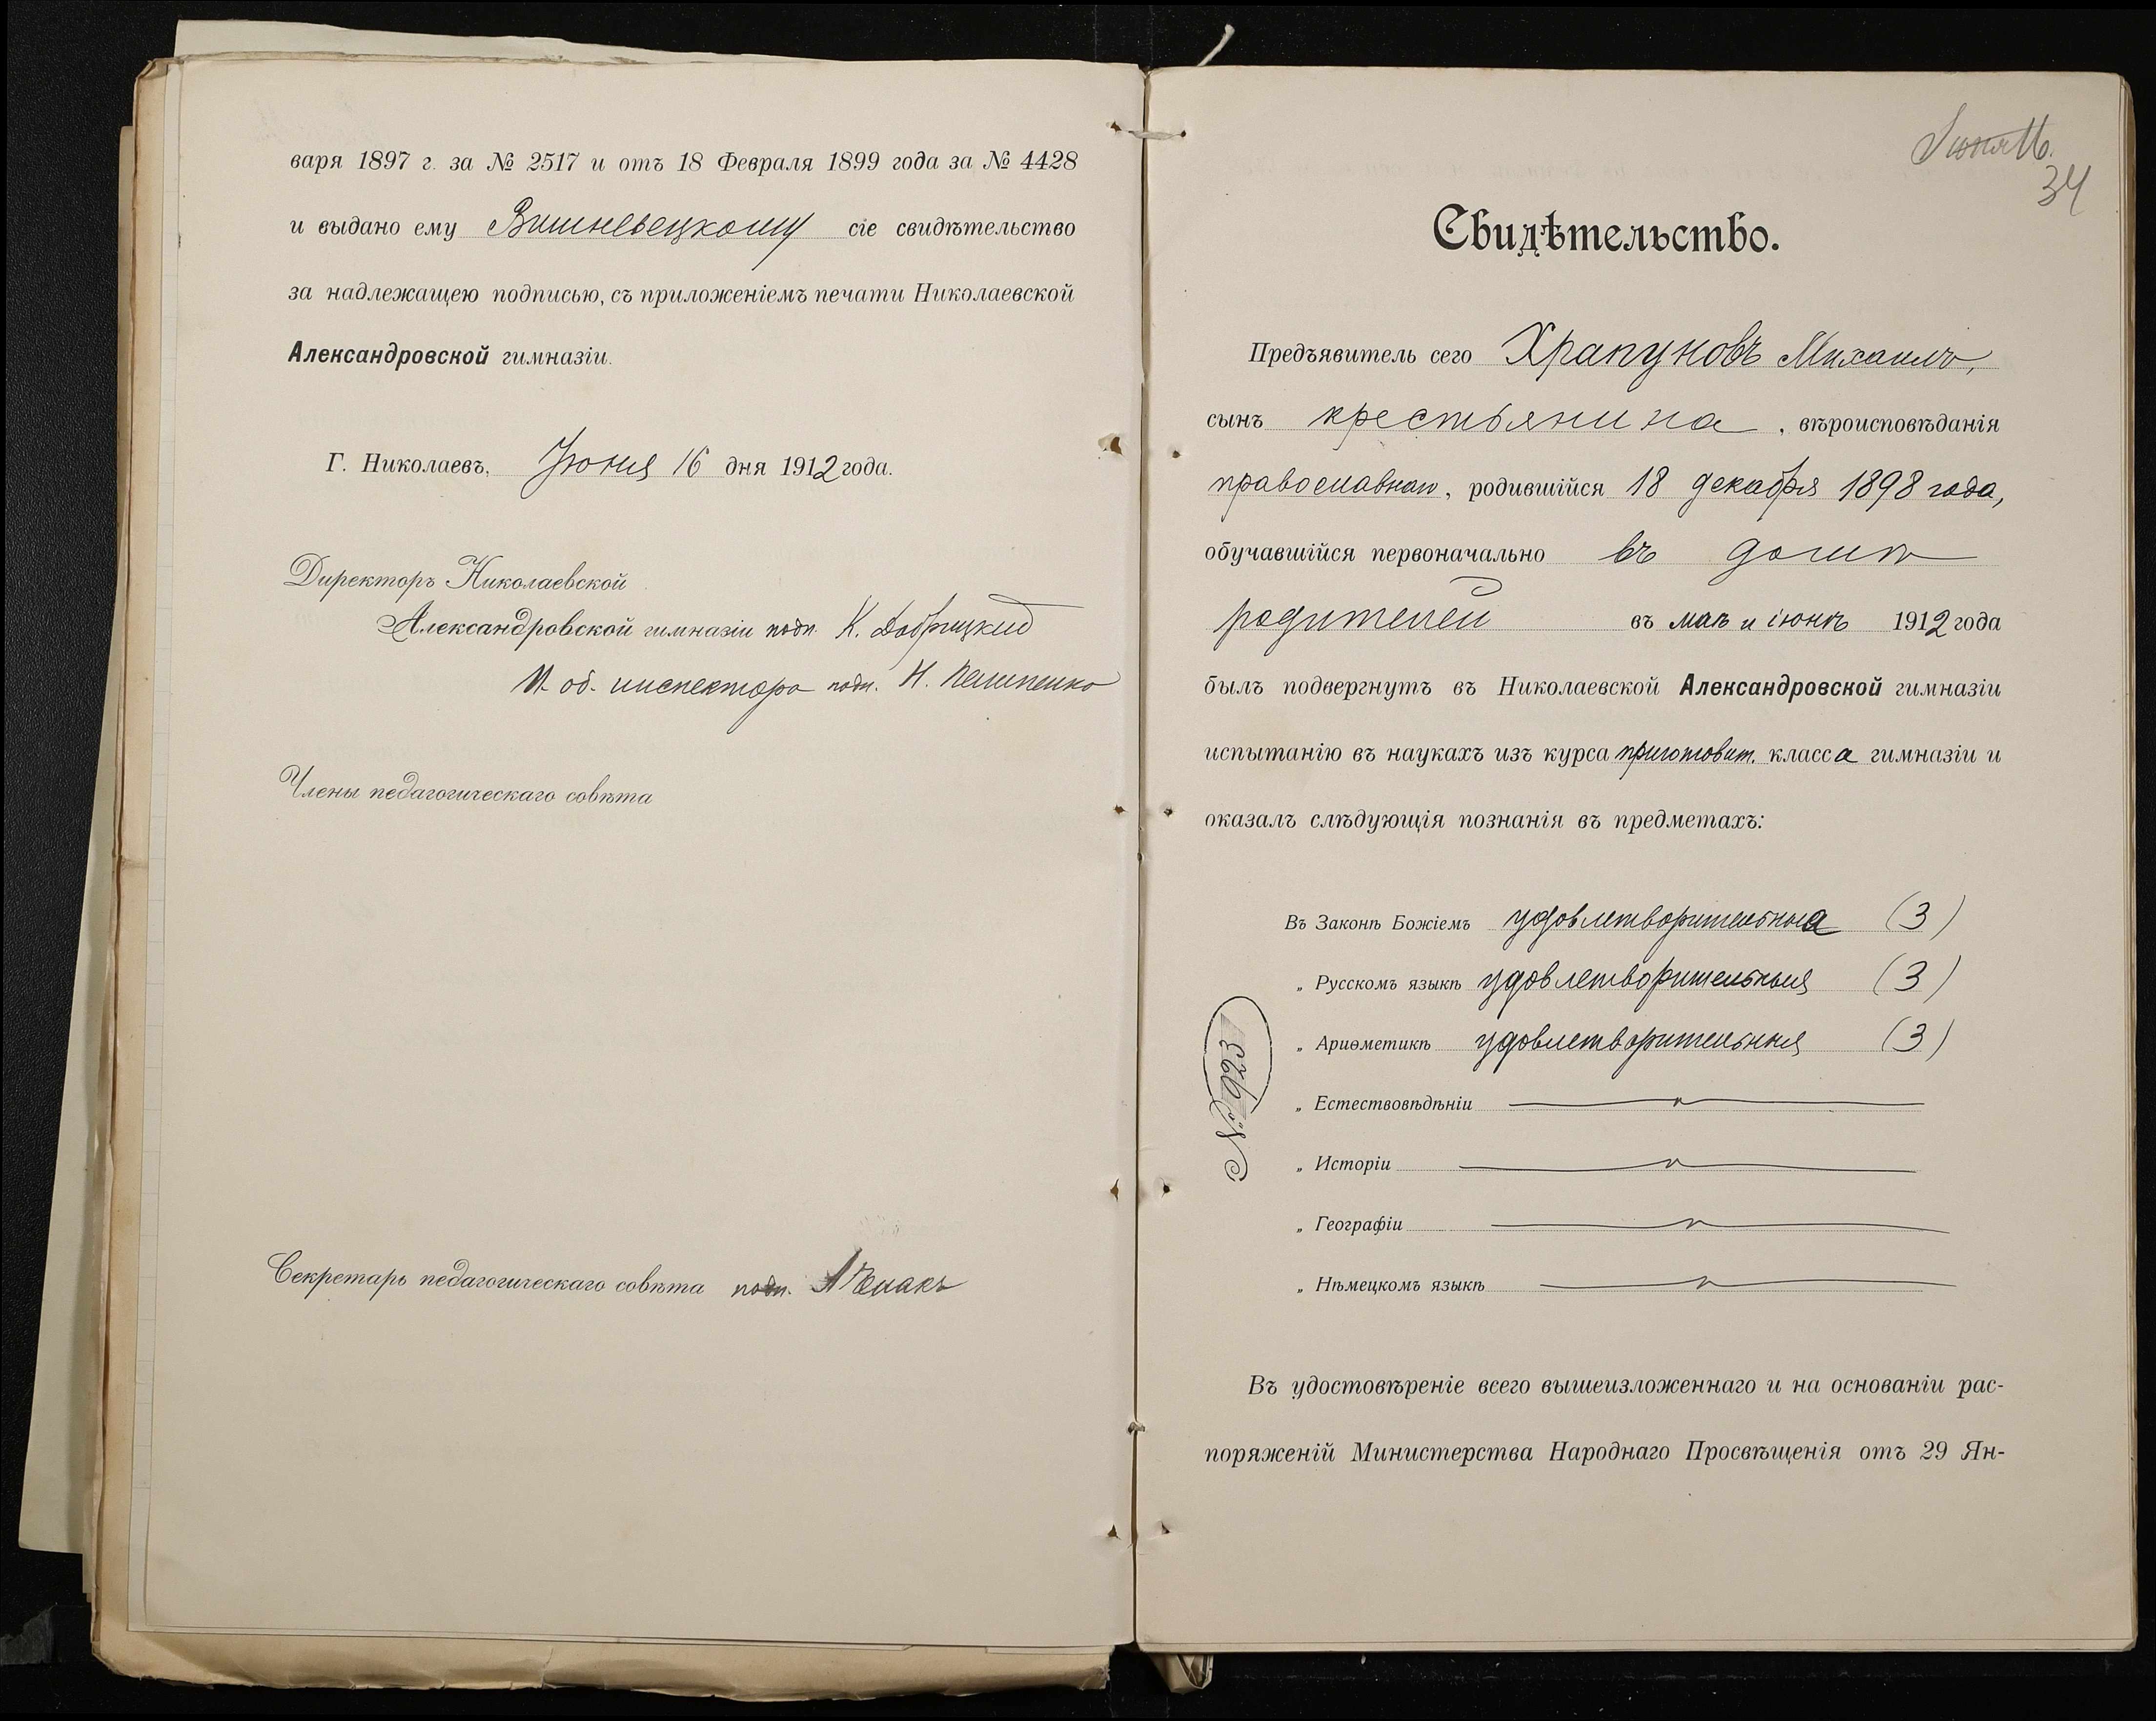 варя 1897 г. за № 2517 и отъ 18 Февраля 1899 года за № 4428
и выдано ему Вишневецкому сіе свидѣтельство
за надлежащею подписью, съ приложеніемъ печати Николаевской
Александровской гимназіи.
Г. Николаевъ, Іюня 16 дня 1912 года.
Директоръ Николаевской
Александровской гимназіи подп. К. Добрицкий
И. об. инспектора подп. Н.
Члены педагогическаго совѣта
Секретарь педагогическаго совѣта подп.
34
Свидѣтельство.
Предъявитель сего Храпуновъ Михаилъ,
сынъ крестьянина, вѣроисповѣданія
православнаго, родившійся 18 декабря 1898 года,
обучавшійся первоначально въ домѣ
родителей въ маѣ и іюнѣ 1912 года
былъ подвергнутъ въ Николаевской Александровской гимназіи
испытанію въ наукахъ изъ курса приготовит. класса гимназіи и
оказалъ слѣдующія познанія въ предметахъ:
Въ Законѣ Божіемъ удовлетворительныя (3)
„ Русскомъ языкѣ удовлетворительныя (3)
„ Ариѳметикѣ удовлетворительныя (3)
„ Естествовѣдѣніи
„ Исторіи
„ Географіи
„ Нѣмецкомъ языкѣ
№ 923
Въ удостовѣреніе всего вышеизложеннаго и на основаніи рас-
поряженій Министерства Народнаго Просвѣщенія отъ 29 Ян-